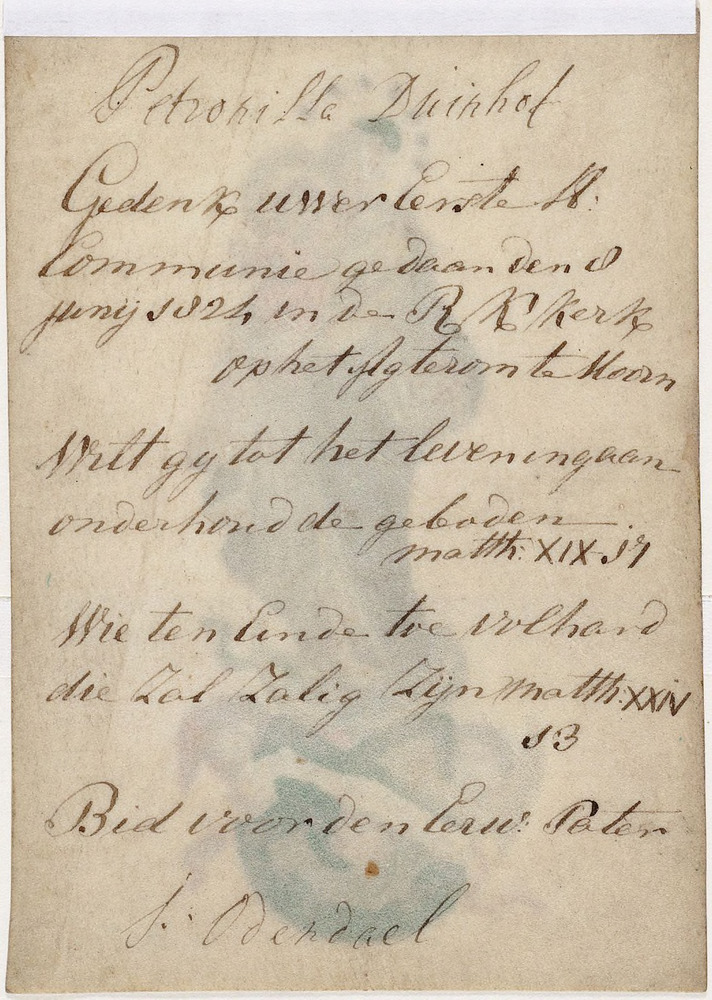 Petronilla Duinhof
Gedenk uwer Eerste H:
Communie gedaan den 8
junij 1824 in de R K Kerk
op het Agterom te Hoorn
Wilt gy tot het leven ingaan
onderhoud de geboden
matth: XIX 17
Wie ten Einde toe volhard
die Zal Zalig Zijn matth: XXIV
13
Bid voor den Eerw: Pater
J: Odendael